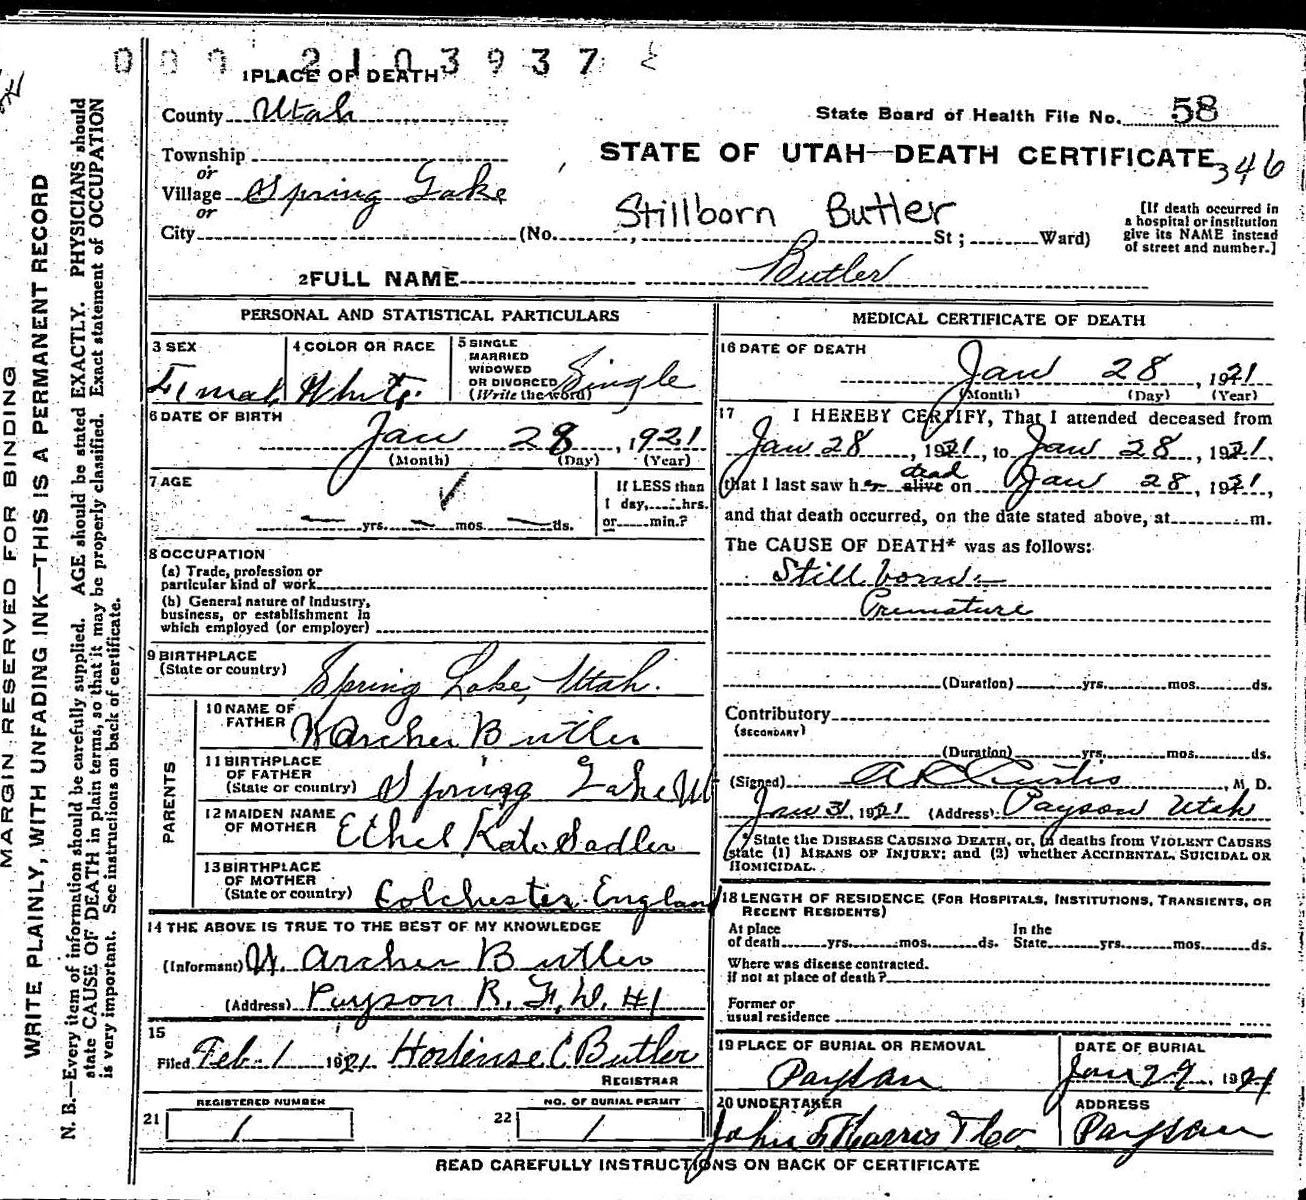 0 0 0 2 1 0 3 9 3 7
1 PLACE OF DEATH
County Utah
State Board of Health File No. 58
Township
or
STATE OF UTAH—DEATH CERTIFICATE 346
Village Spring Lake
or
Stillborn Butler
City (No. , St ; Ward)
[If death occurred in
a hospital or institution
give its NAME instead
of street and number.]
2 FULL NAME Butler
PERSONAL AND STATISTICAL PARTICULARS
3 SEX Female
4 COLOR OR RACE White
5 SINGLE
MARRIED
WIDOWED
OR DIVORCED
(Write the word) Single
6 DATE OF BIRTH
Jan 28, 1921
(Month) (Day) (Year)
7 AGE
yrs. mos. ds.
If LESS than
1 day, hrs.
or min.?
8 OCCUPATION
(a) Trade, profession or
particular kind of work
(b) General nature of Industry,
business, or establishment in
which employed (or employer)
9 BIRTHPLACE
(State or country) Spring Lake, Utah.
PARENTS
10 NAME OF
FATHER W Archer Butler
11 BIRTHPLACE
OF FATHER
(State or country) Spring Lake Ut
12 MAIDEN NAME
OF MOTHER Ethel Kate Sadler
13 BIRTHPLACE
OF MOTHER
(State or country) Colchester England
14 THE ABOVE IS TRUE TO THE BEST OF MY KNOWLEDGE
(Informant) W. Archer Butler
(Address) Payson R. F. D. #1
15
Filed Feb-1 1921 Hortense C Butler
REGISTRAR
REGISTERED NUMBER
21 1
NO. OF BURIAL PERMIT
22 1
MEDICAL CERTIFICATE OF DEATH
16 DATE OF DEATH
Jan 28, 1921
(Month) (Day) (Year)
17 I HEREBY CERTIFY, That I attended deceased from
Jan 28, 1921, to Jan 28, 1921,
dead
that I last saw her alive on Jan 28, 1921,
and that death occurred, on the date stated above, at m.
The CAUSE OF DEATH* was as follows:
Stillborn-
Premature
(Duration) yrs. mos. ds.
Contributory
(SECONDARY)
(Duration) yrs. mos. ds.
(Signed) A L Curtis, M. D.
Jan 31, 1921 (Address) Payson Utah
* State the DISEASE CAUSING DEATH, or, in deaths from VIOLENT CAUSES
state (1) MEANS OF INJURY; and (2) whether ACCIDENTAL, SUICIDAL OR
HOMICIDAL.
18 LENGTH OF RESIDENCE (FOR HOSPITALS, INSTITUTIONS, TRANSIENTS, OR
RECENT RESIDENTS)
At place
of death yrs. mos. ds.
In the
State yrs. mos. ds.
Where was disease contracted.
if not at place of death?
Former or
usual residence
19 PLACE OF BURIAL OR REMOVAL
Payson
DATE OF BURIAL
Jan 29, 1921
20 UNDERTAKER
ADDRESS
Payson
READ CAREFULLY INSTRUCTIONS ON BACK OF CERTIFICATE
MARGIN RESERVED FOR BINDING
WRITE PLAINLY, WITH UNFADING INK—THIS IS A PERMANENT RECORD
N. B.—Every item of information should be carefully supplied. AGE should be stated EXACTLY. PHYSICIANS should
state CAUSE OF DEATH in plain terms, so that it may be properly classified. Exact statement of OCCUPATION
is very important. See instructions on back of certificate.